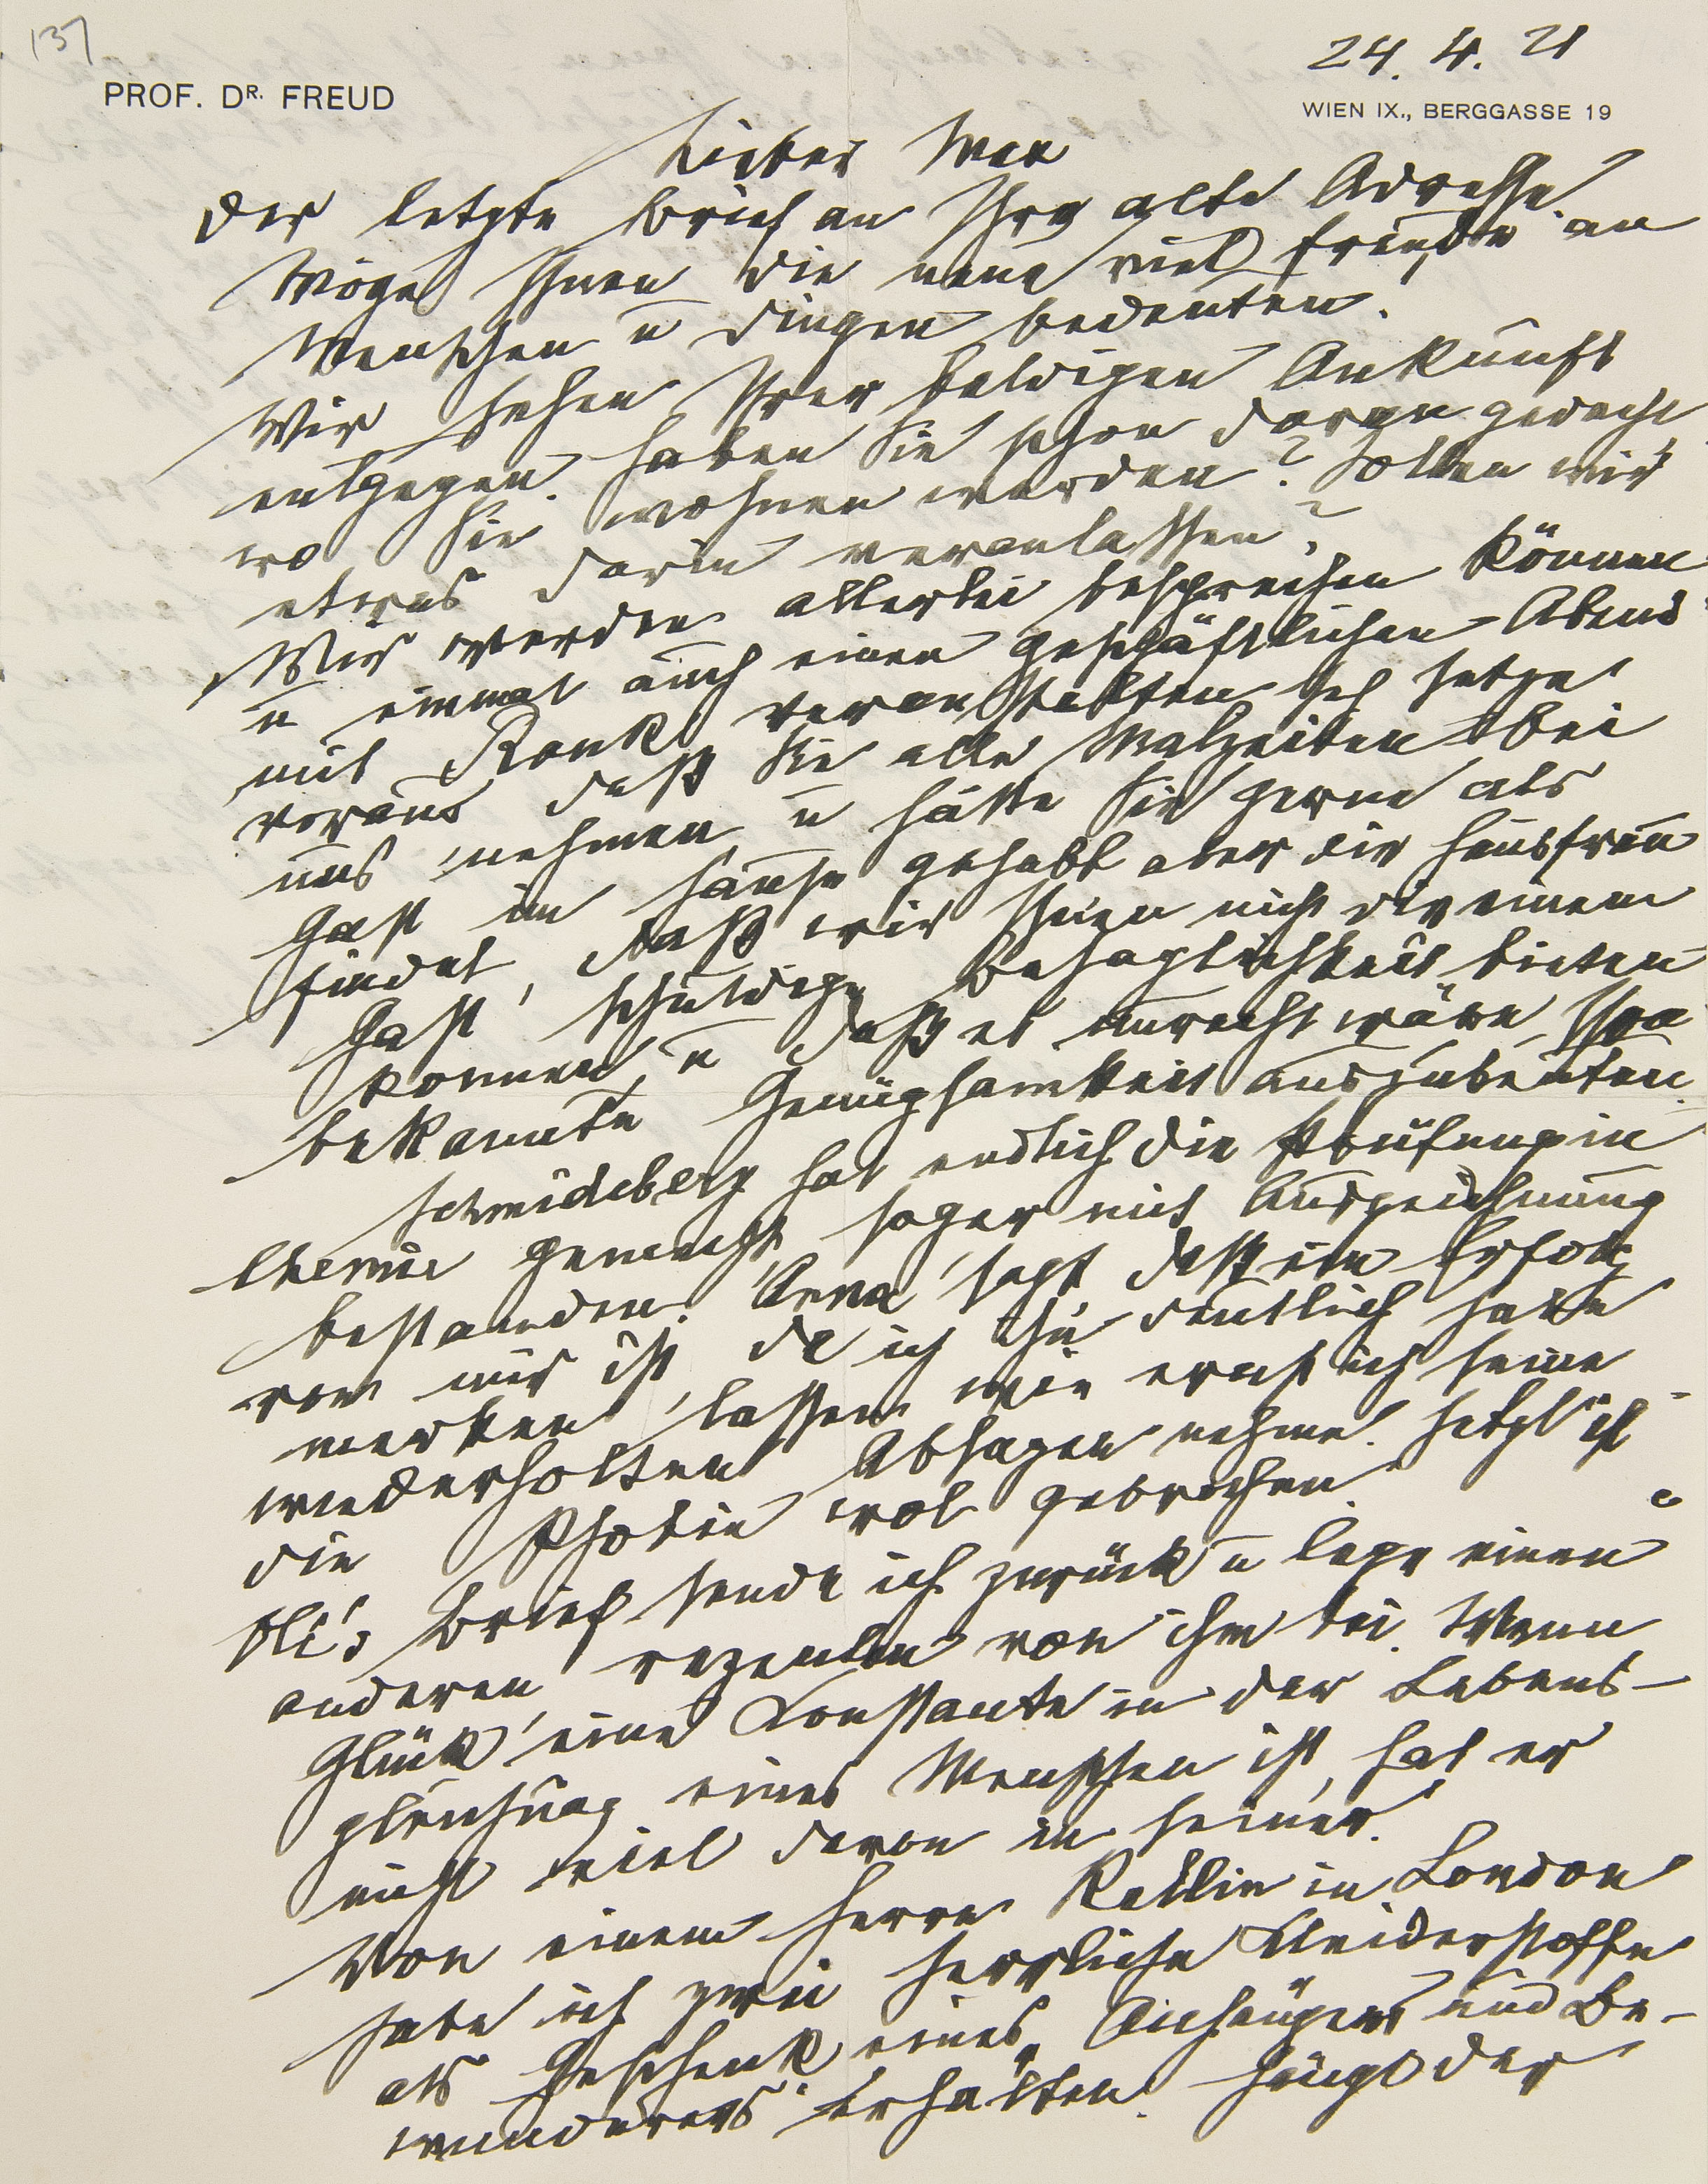 137
24. 4. 21
PROF. DR. FREUD
WIEN IX., BERGGASSE 19
Lieber Max
Der letzte Brief an Ihre alte Adresse.
Möge Ihnen die neue viel Freude an
Menschen u Dingen bedeuten.
Wir sehen Ihrer baldigen Ankunft
entgegen. Haben Sie schon daran gedacht
wo Sie wohnen werden? Sollen wir
etwas darin veranlassen?
Wir werden allerlei besprechen können
u einmal auch einen geschäftlichen Abend
mit Rank veranstalten. Ich setze
voraus daß Sie alle Malzeiten bei
uns nehmen u hätte Sie gerne als
Gast im Hause gehabt aber die Hausfrau
findet, daß wir Ihnen nicht die einem
Gast schuldige Behaglichkeit bieten
können u daß es unrecht wäre, Ihre
bekannte Genügsamkeit auszubeuten.
Schmideberg hat endlich die Prüfung in
Chemie gemacht, sogar mit Auszeichnung
bestanden. Anna sagt, daß ein Erfolg
von mir ist, da ich ihn deutlich habe
merken lassen wie ernst ich seine
wiederholten Absagen nehme. Jetzt ist
die Phobie wol gebrochen.
Oli's Brief sende ich zurück u lege einen
anderen, rezenten von ihm bei. Wenn
Glück eine Konstante in der Lebens-
gleichung eines Menschen ist, hat er
nicht viel davon in seiner.
Von einem Herrn in London
habe ich zwei herrliche Kleiderstoffe
als Geschenk eines „Anhängers und Be-
wunderers" erhalten. Hängt der